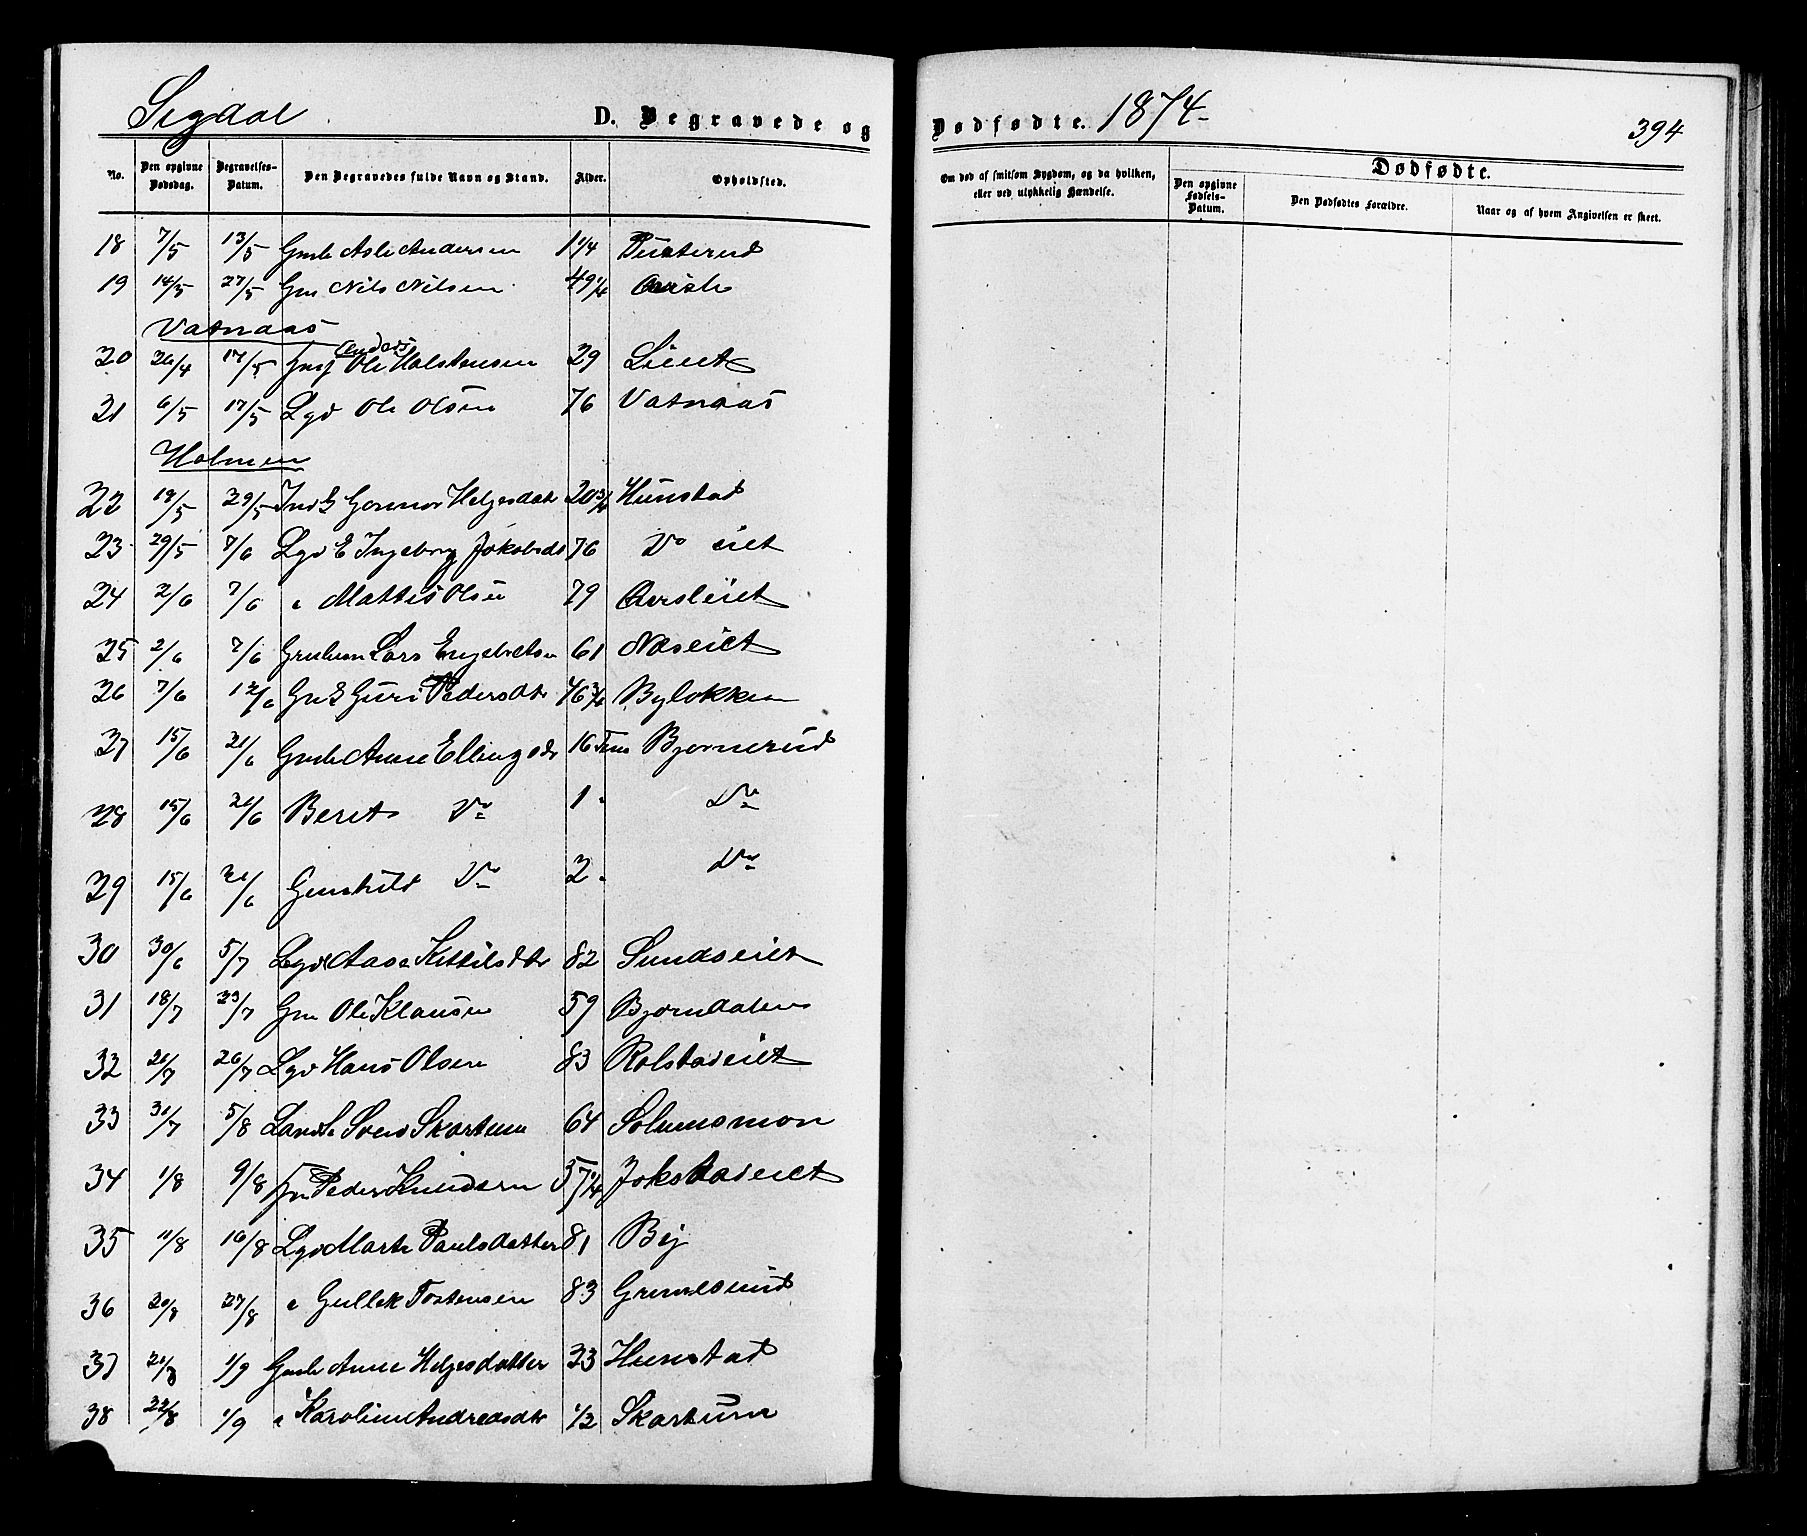 Sigdal D. Begravede og Dødfødte. 1874. 394
No. Den opgivne Dødsdag. Begravelses-Datum. Den Begravedes fulde Navn og Stand. Alder. Opholdsted. Om død af smitsom Sygdom, og da hvilken, eller ved ulykkelig Hændelse. Dødfødte. Den opgivne Fødsels-Datum. Den Dødfødtes Forældre. Naar og af hvem Angivelsen er skeet.
18 7/5 13/5 Gmb Asle Andersen 1 1/4 Tusterud
19 14/5 27/5 Gm Nils Nilsen 49 1/4
Vatnaas
20 26/4 17/5 Anders Ole Halstensen 29 Lieiet
21 6/5 17/5 Lgd Ole Olsen 76 Vatnaas
Holmen
22 19/5 29/5 Ind S Gunnor Helgesdatr 20 3/4 Hunstad
23 29/5 7/6 Lgd E Ingeborg Jokobsdt 76 Do eiet
24 2/6 7/6 " Mattis Olsen 79 Aasleiet
25 2/6 7/6 Lars Engebretsen 61 Næseiet
26 7/6 12/6 Gm E Guri Pedersdtr 46 3/4 Byløkken
27 15/6 21/6 Gmb Anne Ellingsdr 16 Bjørnerud
28 15/6 21/6 Berit Do 1 " Do
29 15/6 21/6 Gunhild Do 2 " Do
30 30/6 5/7 Lgd Aase Kittilsdtr 82 Sundseiet
31 18/7 23/7 Gm Ole Klausen 59 Bjørndalen
32 21/7 26/7 Lgd Hans Olsen 83 Rolstadeiet
33 31/7 5/8 Svend Skartum 64 Solumsmon
34 1/8 9/8 Peder Knudsen 57 1/4 Jokstadeiet
35 11/8 16/8 Lgd Marte Paulsdatter 81 By
36 20/8 27/8 " Gullek Tostensen 83 Grønesund
37 21/8 1/9 Gmb Anne Helgesdatter 23 Hunstad
38 22/8 1/9 " Karoline Andreasdtr 1/2 Skartum